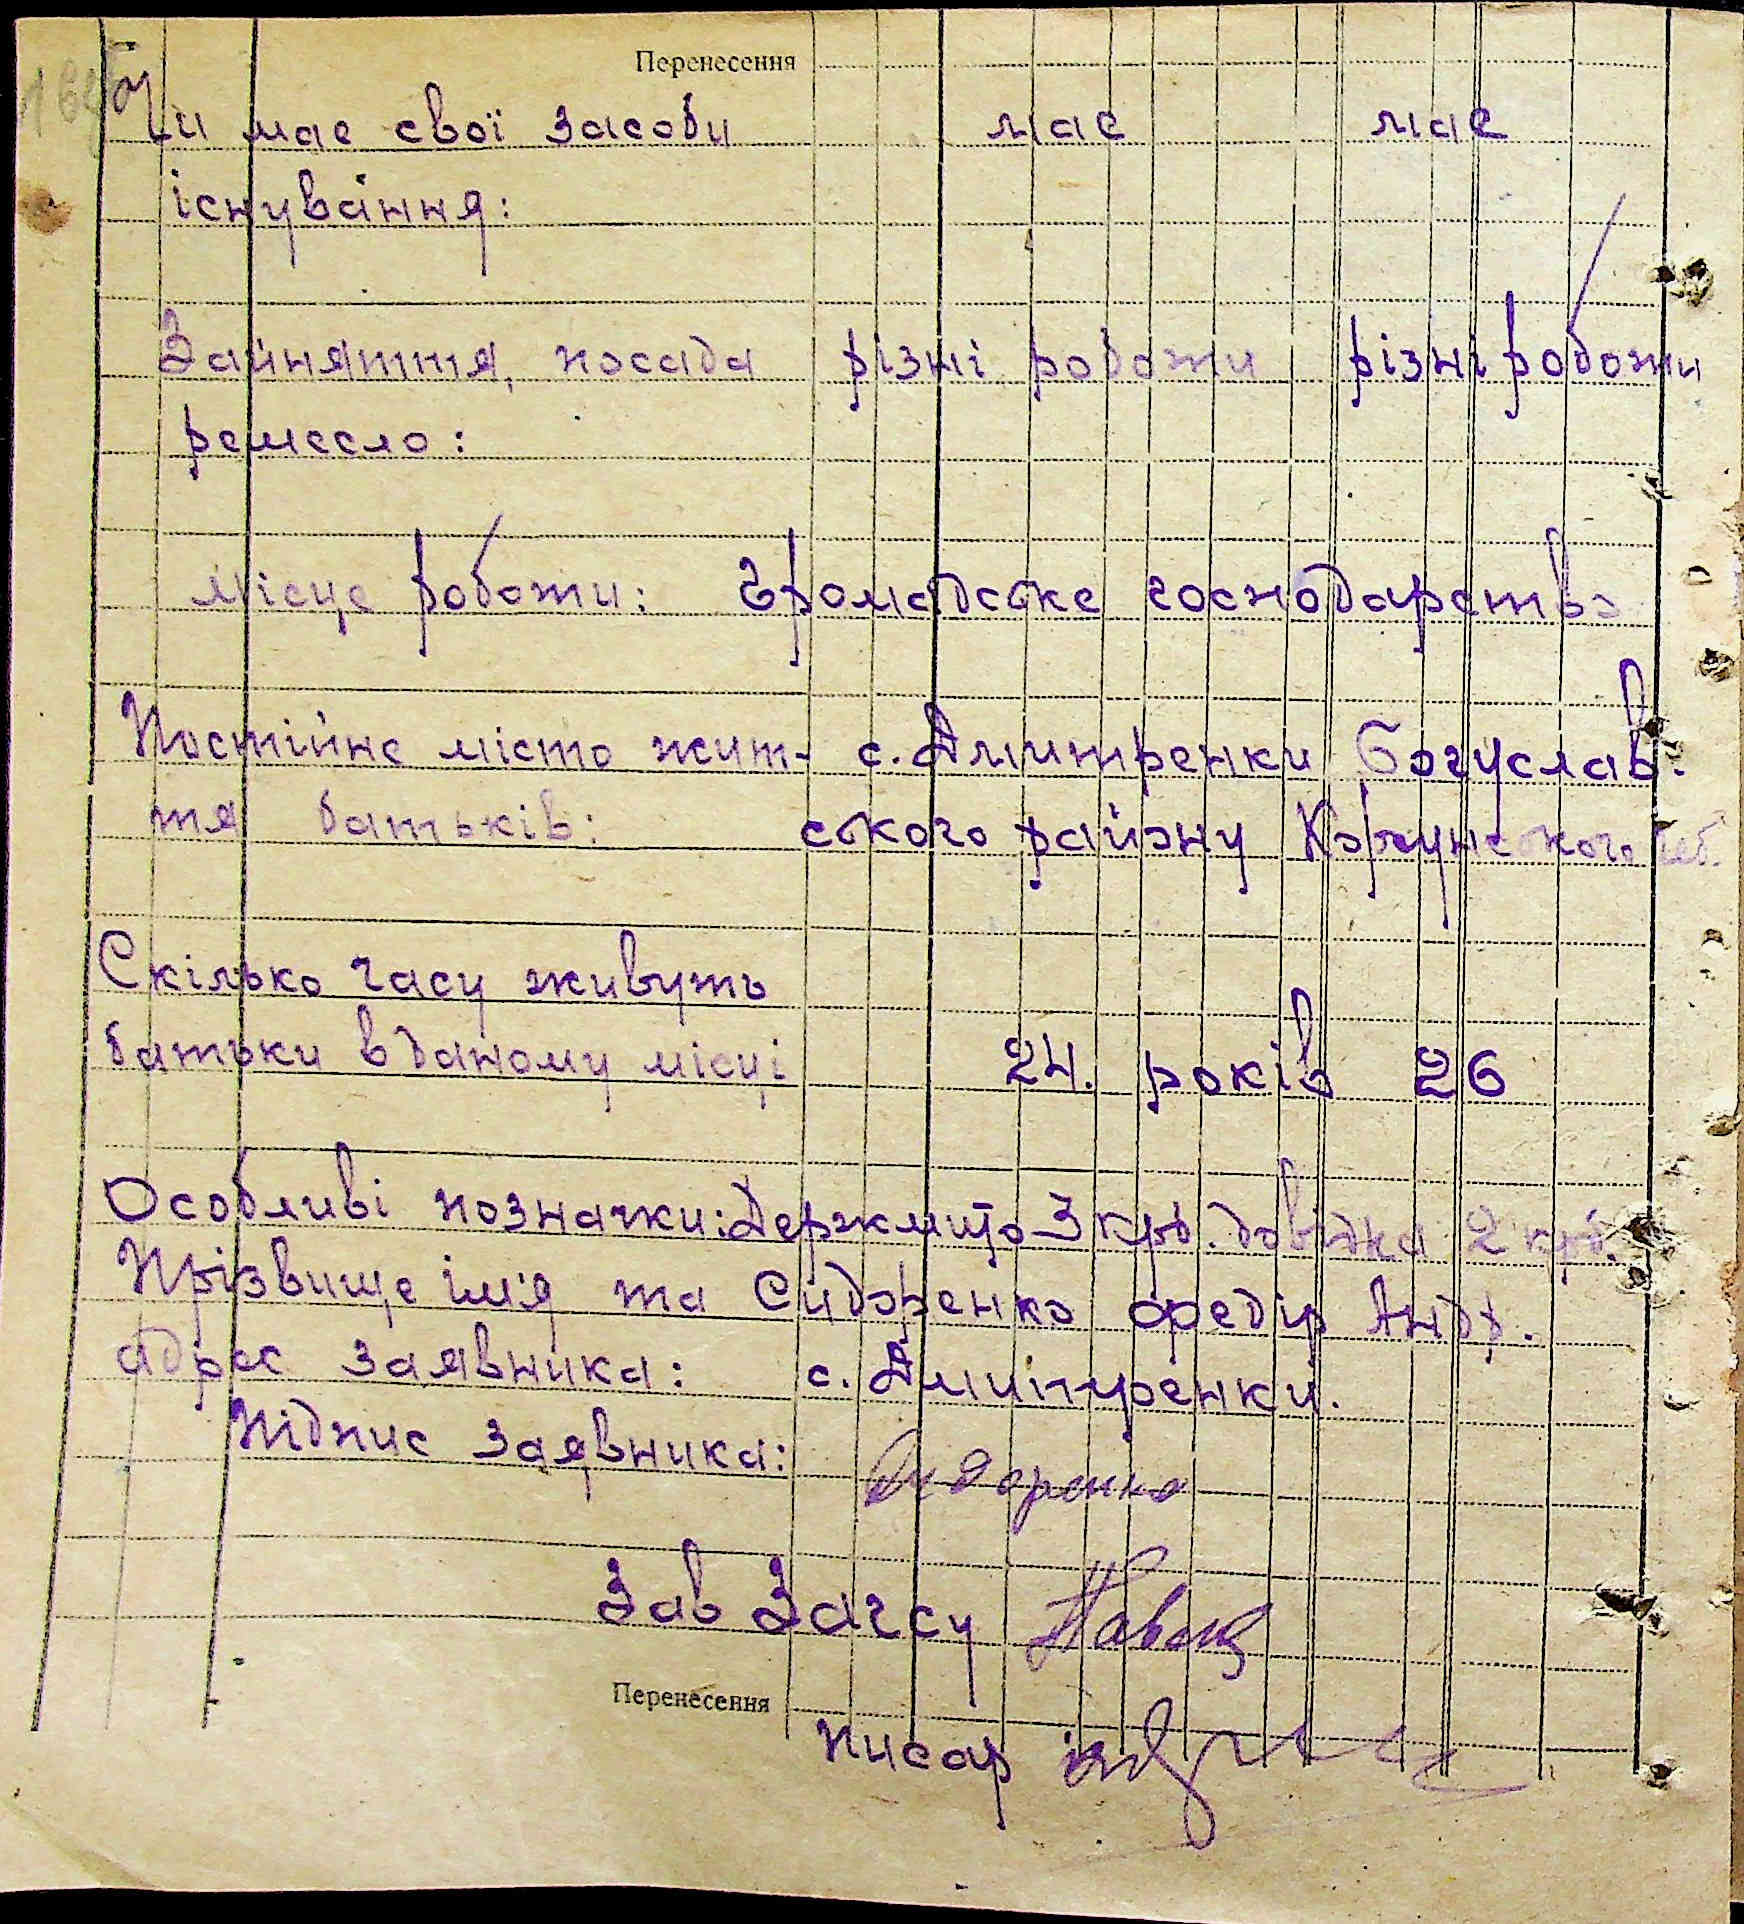 Перенесення
Чи має свої засоби має має
існування:
Зайняття, посада різні роботи різні роботи
ремесло:
Місце роботи: Громадське господарство
Постійне місто жит- с. Дмитренки Богуслав-
тя батьків: ського району Корсунського геб.
Скілько часу живуть
батьки в даному місці 24. років 26
Особливі позначки: Держмито 3 крб. довідка 2 крб.
Прізвище ім'я та Сидоренко Федір Андр.
адрес заявника: с. Дмитренки.
Підпис заявника: Сидоренко
Зав Загсу
Перенесення
писар